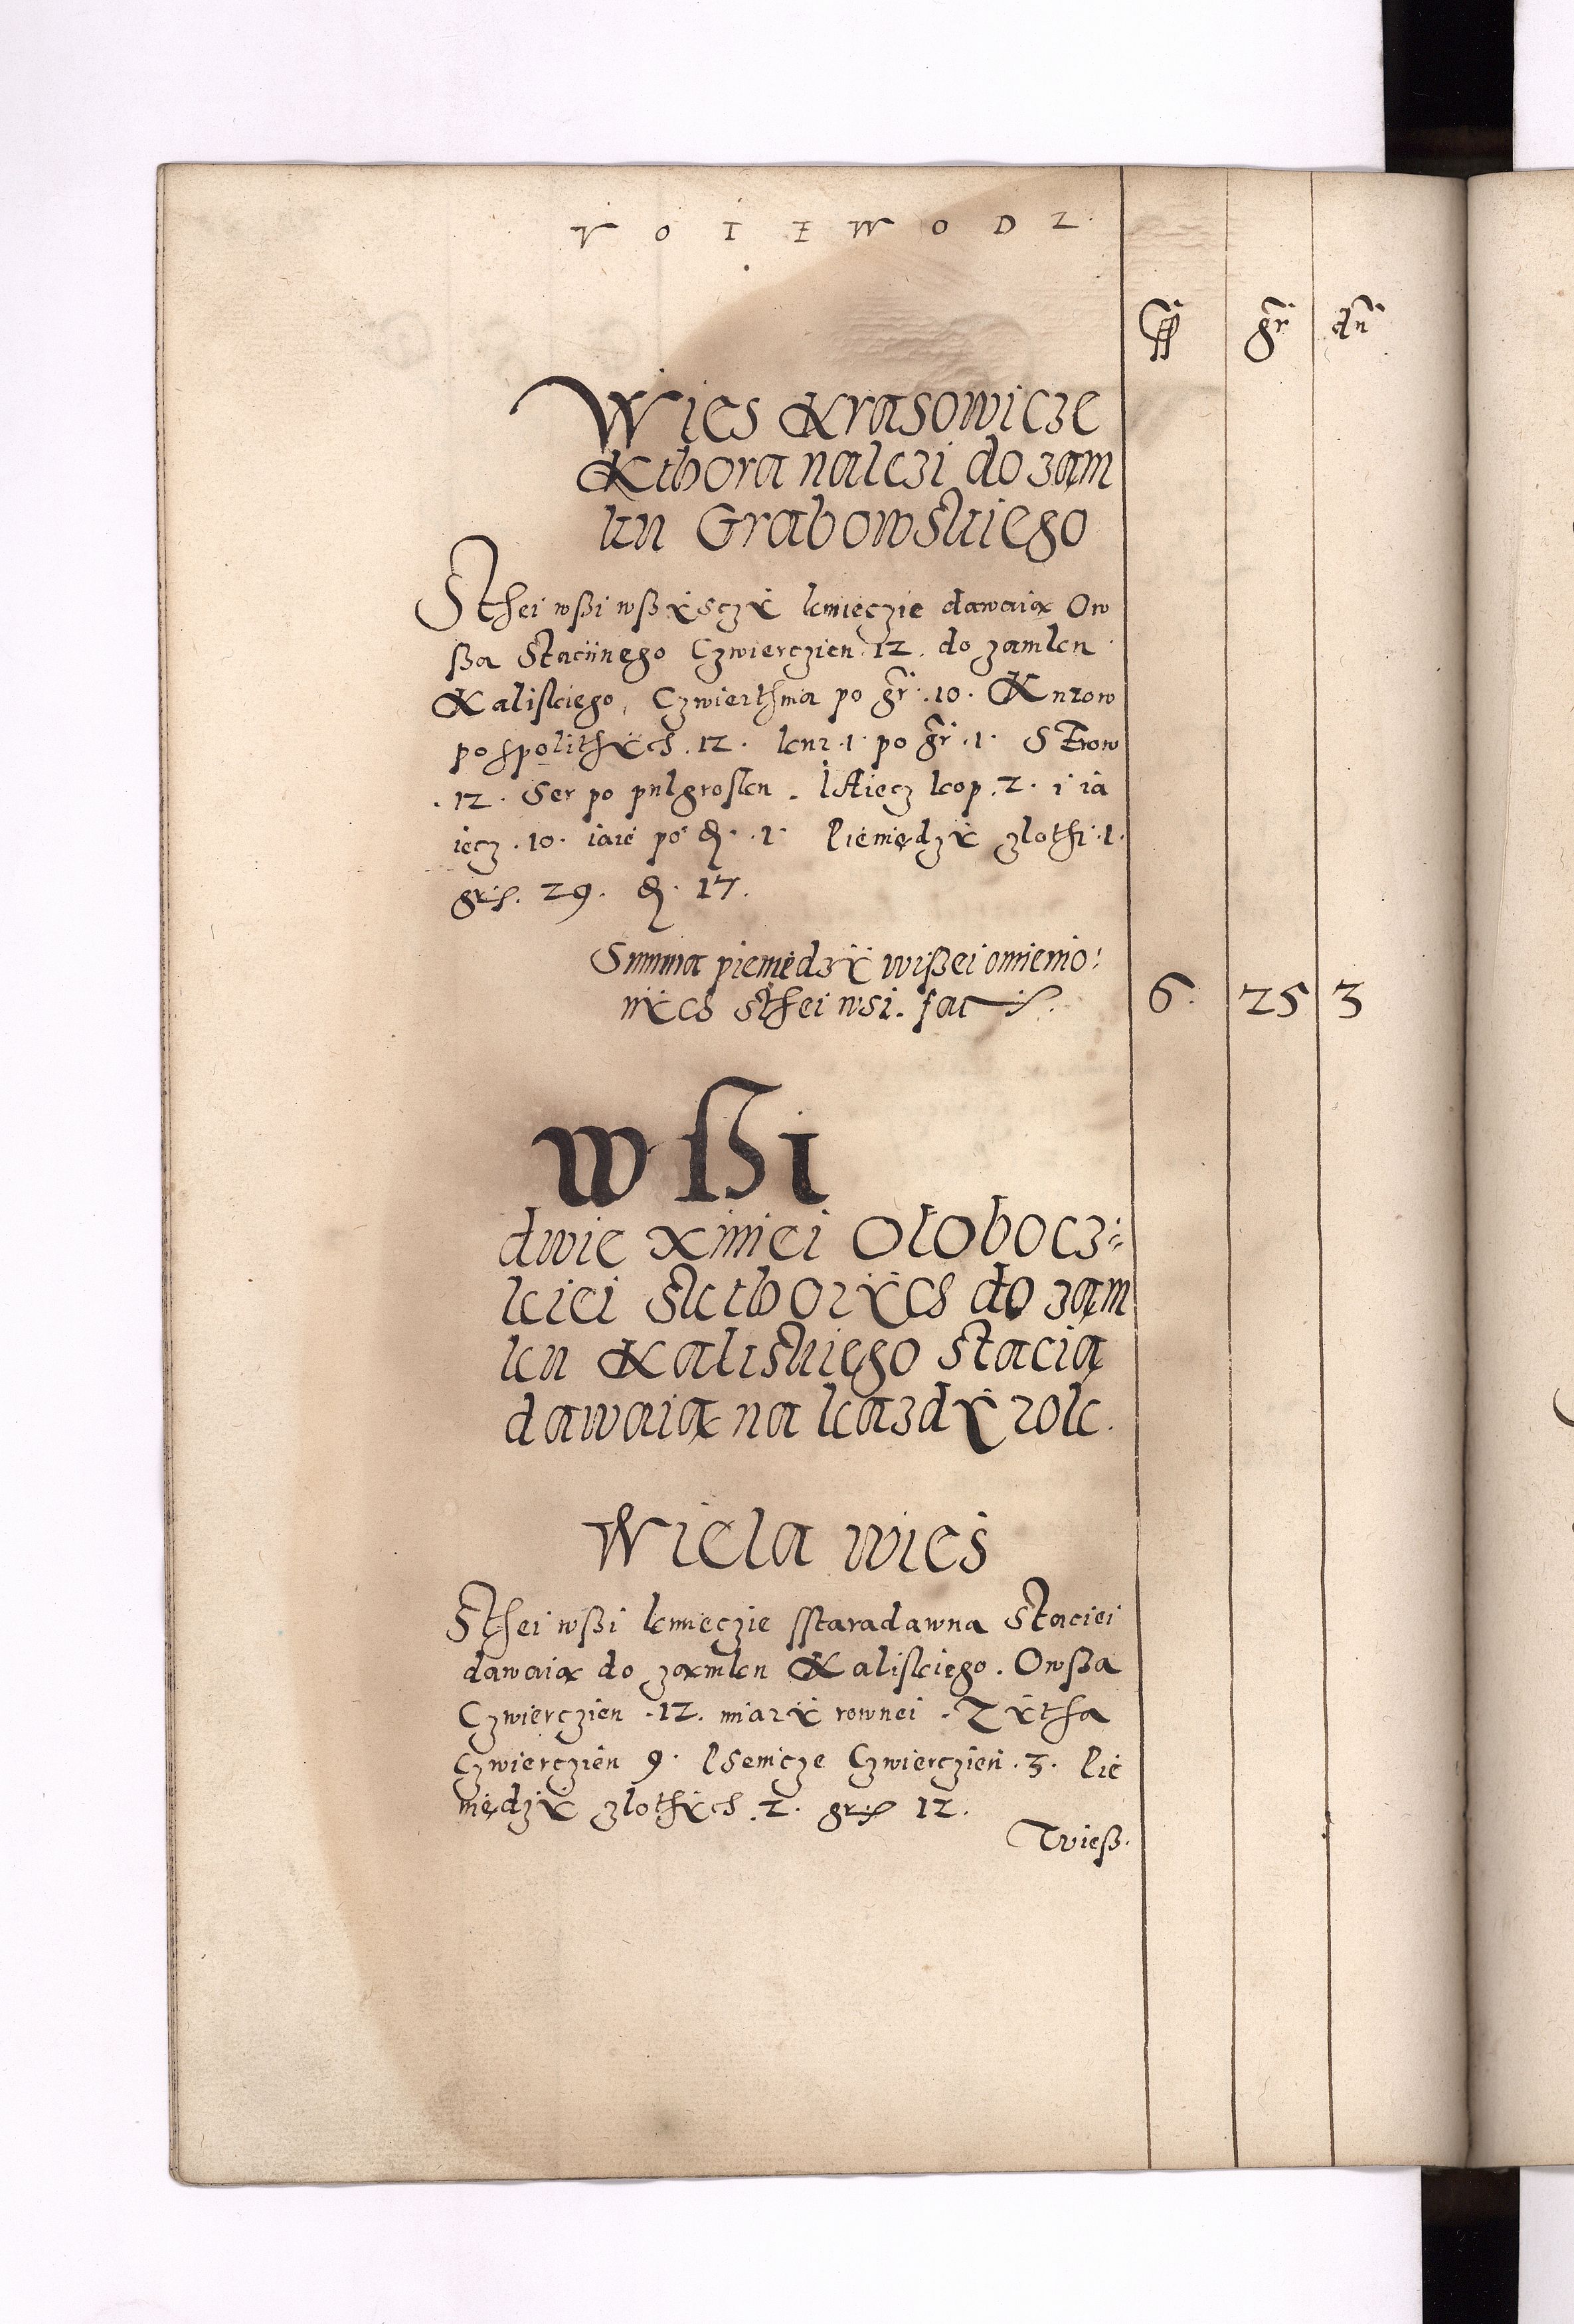 V O I E W O D Z
fl gr dn
Wies Krasowicze
Kthora nalezi do zam
ku Grabowskiego
Sthei wßi wßÿsczÿ kmieczie dawaią Ow
ßa Stacÿnego Czwierczien 12. do zamku
Kaliskiego, Czwierthnia po gr. 10. Kurow
pospolithÿch. 12. kur. 1. po gr. 1. SErow
.12. Ser po pulgrosku. IAiecz kop. 2. i ia
iecz. 10. iaie po d. 1. Pieniędzÿ zlothi. 1.
gr. 29. d. 17.
Summa pieniędzÿ wißei omienio:
nÿch sthei wsi. fac 6. 25 3
wßi
dwie Xiniei Olobocz:
kiei skthorÿch do zam
ku Kaliskiego stacią
dawaią na kazdÿ rok.
Wiela wies
Sthei wßi kmieczie sstaradawna Staciei
dawaią do zamku Kaliskiego. Owßa
Czwierczien .12. miarÿ rownei. Zÿtha
Czwierczien 9. Psenicze Czwierczien .3. Pie
niędzÿ zlothÿch .2. gr 12.
Wieß.